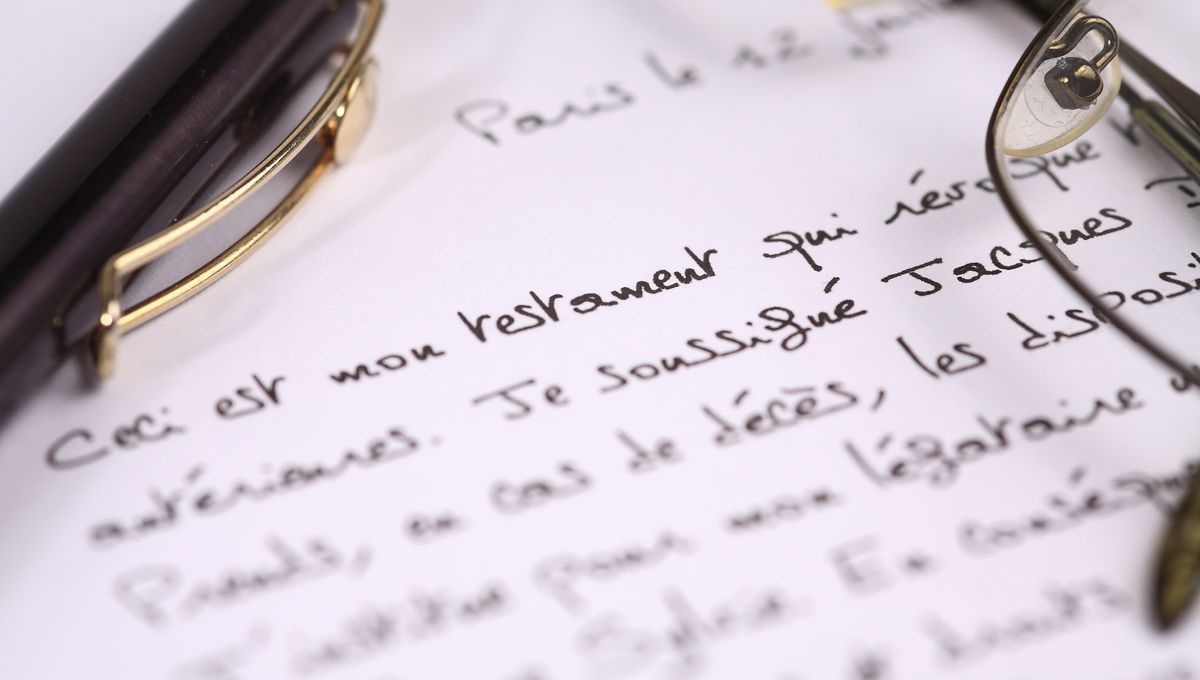 Paris le 12
Ceci est mon testament qui révoque
antérieures. Je soussigné Jacques
Prends, en cas de décès, les disposit
J'institue pour mon légataire
Sylvie. En conséqu
droits